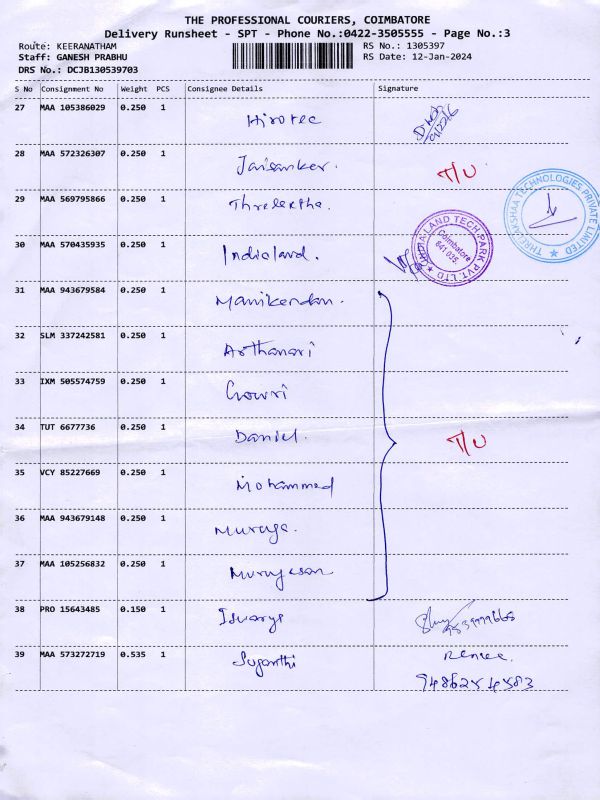 THE PROFESSIONAL COURIERS, COIMBATORE
Delivery Runsheet - SPT - Phone No.:0422-3505555 - Page No.:3
Route: KEERANATHAM RS No.: 1305397
Staff: GANESH PRABHU RS Date: 12-Jan-2024
DRS No.: DCJB130539703
S No Consignment No Weight PCS Consignee Details Signature
27 MAA 105386029 0.250 1 Hirotec
28 MAA 572326307 0.250 1 Jaisanker. T/U
29 MAA 569795866 0.250 1
THREE AKSHAA TECHNOLOGIES PRIVATE LIMITED
30 MAA 570435935 0.250 1 Indialand.
INDIA-LAND TECH PARK PVT. LTD
Coimbatore
641 035.
31 MAA 943679584 0.250 1 Manikendan.
32 SLM 337242581 0.250 1 Arthanari
33 IXM 505574759 0.250 1 Gowri
34 TUT 6677736 0.250 1 Daniel. T/U
35 VCY 85227669 0.250 1 Mohammed
36 MAA 943679148 0.250 1 Muruga.
37 MAA 105256832 0.250 1 Murugesan
38 PRO 15643485 0.150 1 Isuarya
39 MAA 573272719 0.535 1 Suganthi Renuee.
9486254583